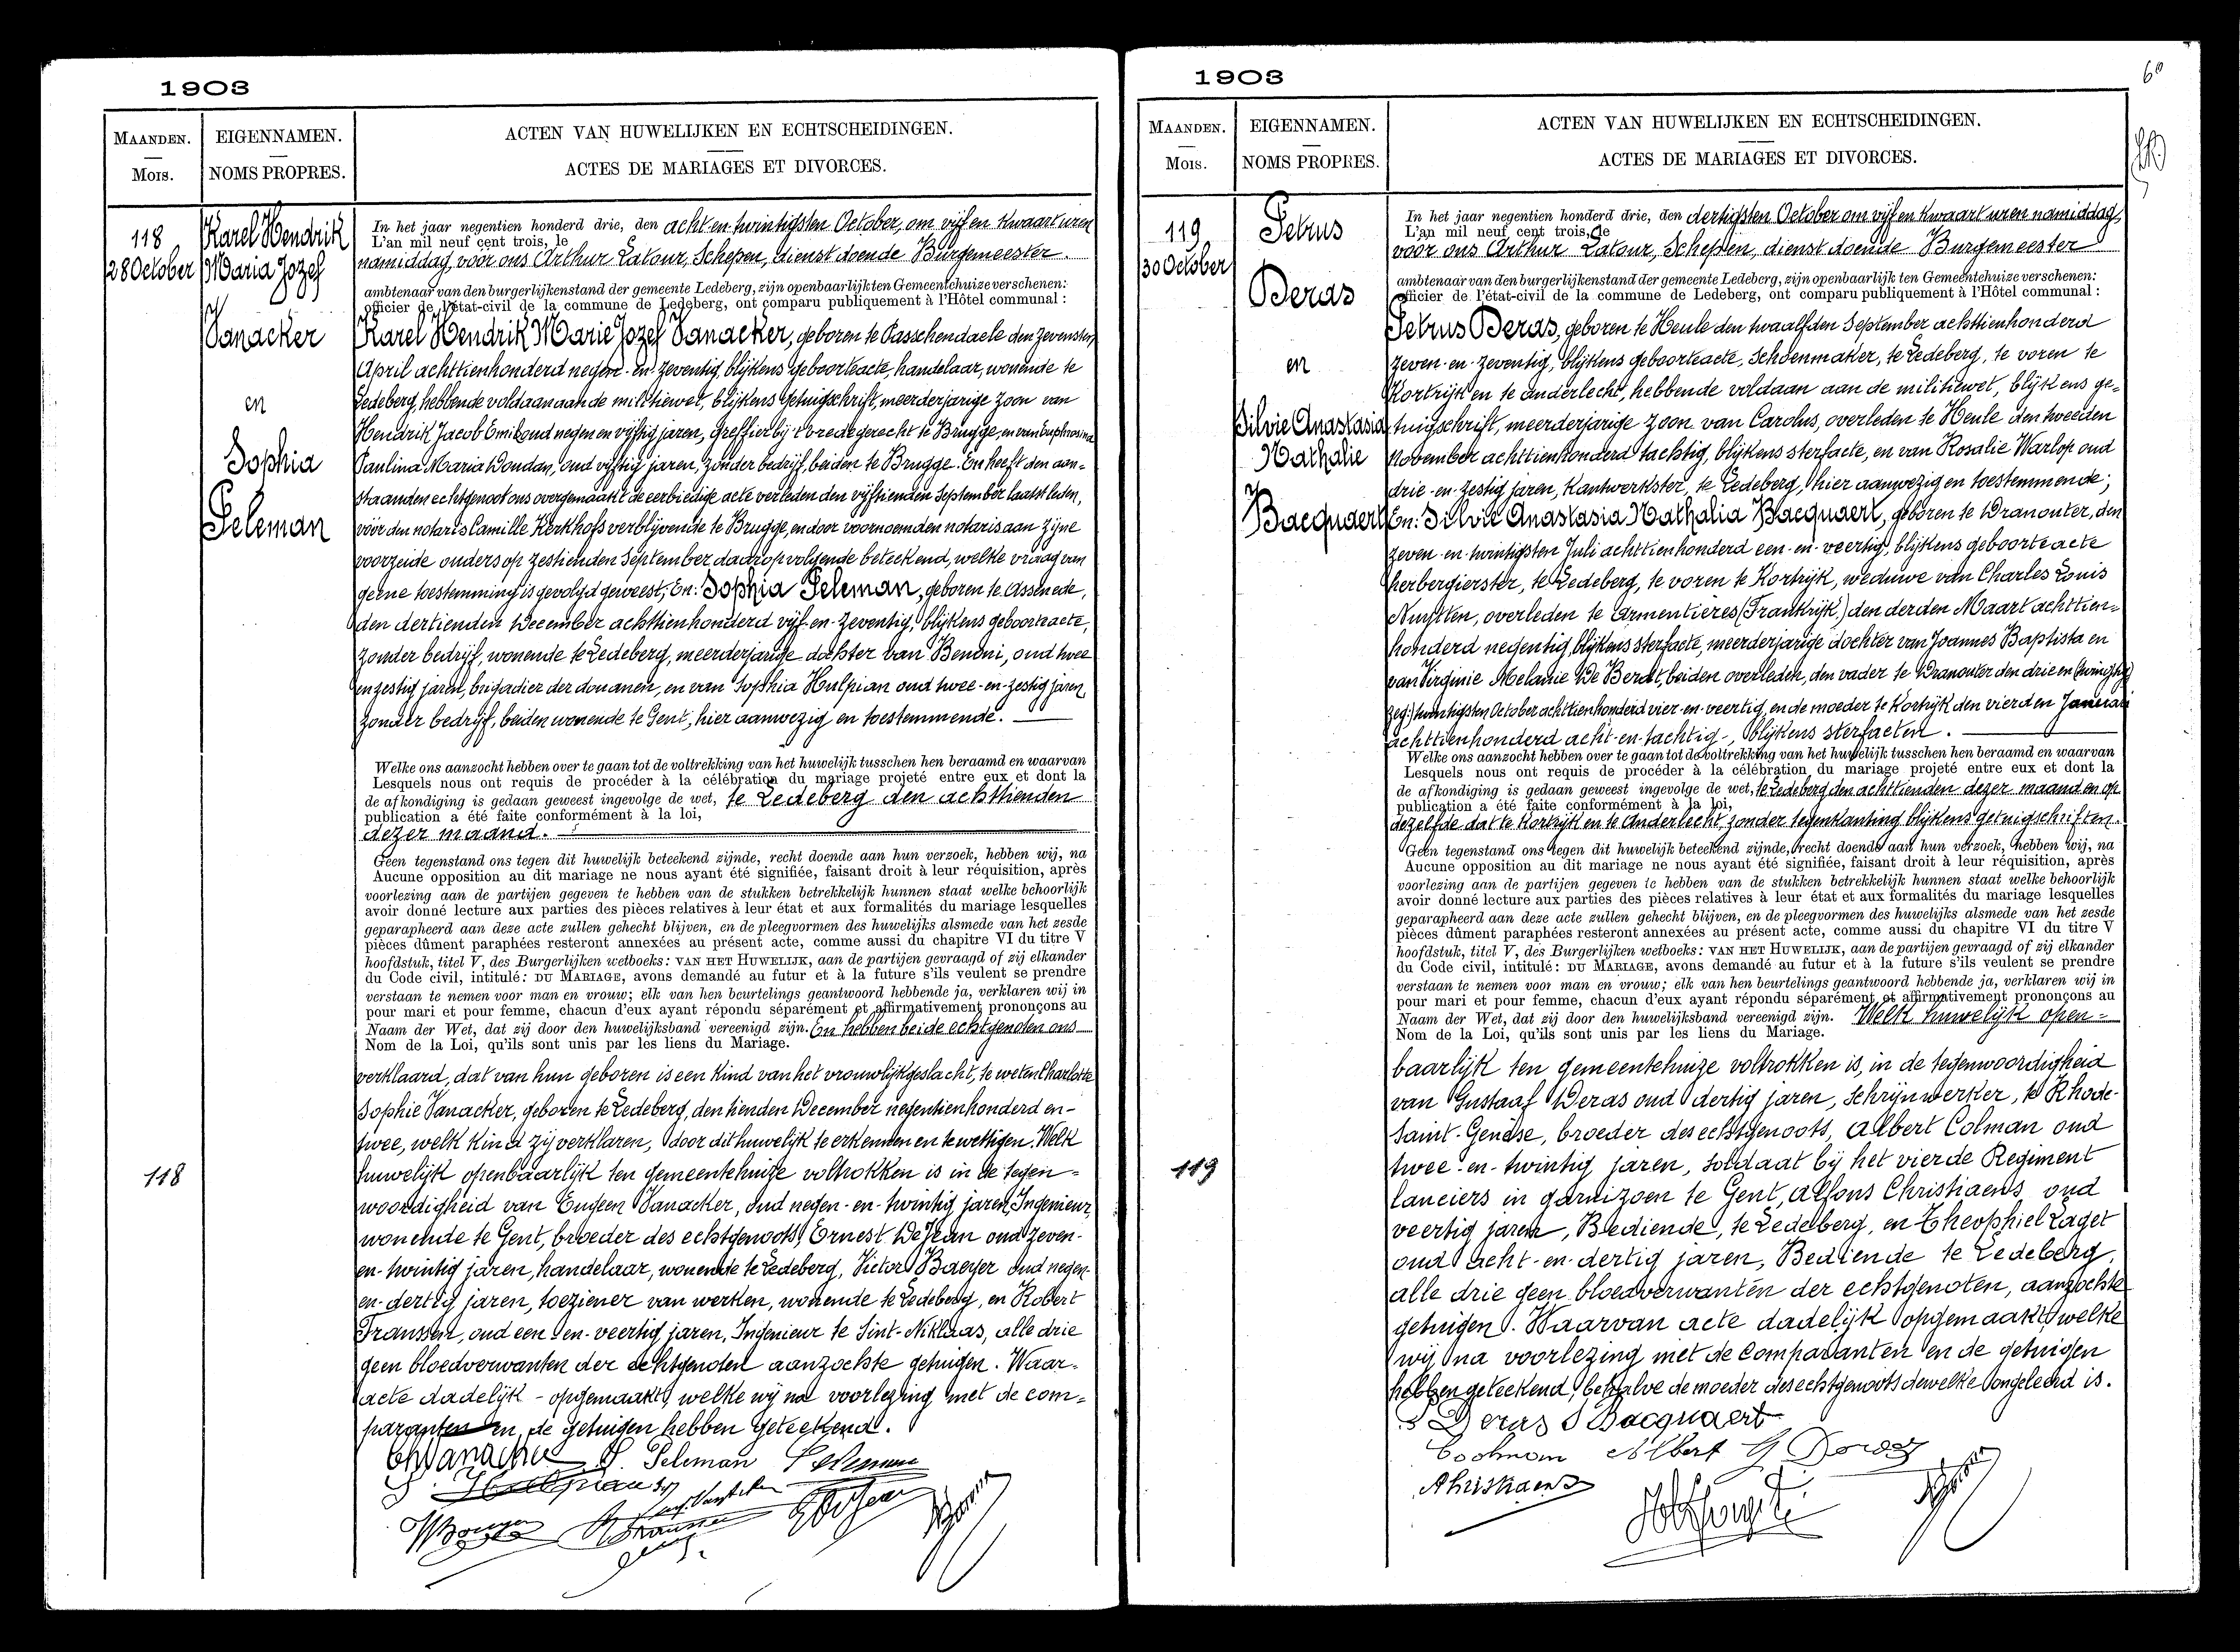 1903
MAANDEN.
Mois.
EIGENNAMEN.
NOMS PROPRES.
ACTEN VAN HUWELIJKEN EN ECHTSCHEIDINGEN.
ACTES DE MARIAGES ET DIVORCES.
118
28 October
Karel Hendrik
Maria Jozef
Vanacker
en
Sophia
Peleman
118
In het jaar negentien honderd drie, den acht-en-twintigsten October, om vijf en kwaart uren
L'an mil neuf cent trois, le
namiddag, voor ons Arthur Latour, Schepen, dienst doende Burgemeester.
ambtenaar van den burgerlijkenstand der gemeente Ledeberg, zijn openbaarlijk ten Gemeentehuize verschenen:
officier de l'état-civil de la commune de Ledeberg, ont comparu publiquement à l'Hôtel communal :
Karel Hendrik Marie Jozef Vanacker, geboren te Passchendaele den zevensten
April achttienhonderd negen-en-zeventig, blijkens geboorteacte, handelaar, wonende te
Ledeberg, hebbende voldaan aan de militiewet, blijkens getuigschrift, meerderjarige zoon van
Hendrik Jacob Emil oud negen en vijftig jaren, greffier bij 't vredegerecht te Brugge, en van Euphrosina
Paulina Maria Woudan, oud vijftig jaren, zonder bedrijf, beiden te Brugge. En heeft den aan-
staanden echtgenoot ons overgemaakt de eerbiedige acte verleden den vijftienden September laatst leden,
voor den notaris Camille Kerkhofs verblijvende te Brugge, en door voornoemden notaris aan zijne
voorzeide ouders op zestienden September daaropvolgende beteekend, welke vraag van
geene toestemming is gevolgd geweest; En: Sophia Peleman, geboren te Assenede,
den dertienden December achttienhonderd vijf-en-zeventig, blijkens geboorteacte,
zonder bedrijf, wonende te Ledeberg, meerderjarige dochter van Benoni, oud twee
en zestig jaren, brigadier der douanen, en van Sophia Hulpian oud twee-en-zestig jaren,
zonder bedrijf, beiden wonende te Gent, hier aanwezig en toestemmende.
Welke ons aanzocht hebben over te gaan tot de voltrekking van het huwelijk tusschen hen beraamd en waarvan
Lesquels nous ont requis de procéder à la célébration du mariage projeté entre eux et dont la
de afkondiging is gedaan geweest ingevolge de wet, te Ledeberg den achttienden
publication a été faite conformément à la loi,
dezer maand.
Geen tegenstand ons tegen dit huwelijk beteekend zijnde, recht doende aan hun verzoek, hebben wij, na
Aucune opposition au dit mariage ne nous ayant été signifiée, faisant droit à leur réquisition, après
voorlezing aan de partijen gegeven te hebben van de stukken betrekkelijk hunnen staat welke behoorlijk
avoir donné lecture aux parties des pièces relatives à leur état et aux formalités du mariage lesquelles
geparapheerd aan deze acte zullen gehecht blijven, en de pleegvormen des huwelijks alsmede van het zesde
pièces dûment paraphées resteront annexées au présent acte, comme aussi du chapitre VI du titre V
hoofdstuk, titel V, des Burgerlijken wetboeks: VAN HET HUWELIJK, aan de partijen gevraagd of zij elkander
du Code civil, intitulé: DU MARIAGE, avons demandé au futur et à la future s'ils veulent se prendre
verstaan te nemen voor man en vrouw; elk van hen beurtelings geantwoord hebbende ja, verklaren wij in
pour mari et pour femme, chacun d'eux ayant répondu séparément et affirmativement prononçons au
Naam der Wet, dat zij door den huwelijksband vereenigd zijn. En hebben beide echtgenoten ons
Nom de la Loi, qu'ils sont unis par les liens du Mariage.
verklaard, dat van hun geboren is een kind van het vrouwlijkgeslacht, te weten Charlotte
Sophie Vanacker, geboren te Ledeberg, den tienden December negentienhonderd en-
twee, welk kind zij verklaren, door dit huwelijk te erkennen en te wettigen. Welk
huwelijk openbaarlijk ten gemeentehuize voltrokken is in de tegen-
woordigheid van Eugeen Vanacker, oud negen-en-twintig jaren, Ingenieur,
wonende te Gent, broeder des echtgenoots, Ernest De Jean oud zeven-
en-twintig jaren, handelaar, wonende te Ledeberg, Victor Baeyer oud negen-
en-dertig jaren, toeziener van werken, wonende te Ledeberg, en Robert
Franssen, oud een-en-veertig jaren, Ingenieur te Sint-Niklaas, alle drie
geen bloedverwanten der echtgenoten aanzochte getuigen. Waar-
acte dadelijk - opgemaakt, welke wij na voorlezing met de com-
paranten en de getuigen hebben geteekend.
Ch Vanacker S. Peleman Peleman
S. Hulpiau
1903
60
MAANDEN.
Mois.
EIGENNAMEN.
NOMS PROPRES.
ACTEN VAN HUWELIJKEN EN ECHTSCHEIDINGEN.
ACTES DE MARIAGES ET DIVORCES.
119
30 October
Petrus
Deras
en
Silvie Anastasia
Nathalie
Bacquaert
119
In het jaar negentien honderd drie, den dertigsten October om vijf en kwaart uren namiddag,
L'an mil neuf cent trois, le
voor ons Arthur Latour, Schepen, dienst doende Burgemeester
ambtenaar van den burgerlijkenstand der gemeente Ledeberg, zijn openbaarlijk ten Gemeentehuize verschenen:
officier de l'état-civil de la commune de Ledeberg, ont comparu publiquement à l'Hôtel communal :
Petrus Deras, geboren te Heule den twaalfden September achttienhonderd
zeven-en-zeventig, blijkens geboorteacte, Schoenmaker, te Ledeberg, te voren te
Kortrijk en te anderlecht, hebbende voldaan aan de militiewet, blijkens ge-
tuigschrift, meerderjarige zoon van Carolus, overleden te Heule den tweeden
November achttienhonderd tachtig, blijkens sterfacte, en van Rosalie Warlop oud
drie-en-zestig jaren, Kantwerkster, te Ledeberg, hier aanwezig en toestemmende;
En: Silvie Anastasia Nathalia Bacquaert, geboren te Dranouter, den
zeven-en-twintigsten Juli achttienhonderd een-en-veertig, blijkens geboorteacte
herbergierster, te Ledeberg, te voren te Kortrijk, weduwe van Charles Louis
Nuytten, overleden te Armentières (Frankrijk,) den derden Maart achttien-
honderd negentig, blijkens sterfacte, meerderjarige dochter van Joannes Baptista en
van Virginie Melanie De Berdt, beiden overleden, den vader te Dranouter den drie en (twintig
zeg:) twintigsten October achttienhonderd vier-en-veertig, en de moeder te Kortrijk den vierden Januari
achttienhonderd acht-en-tachtig-, blijkens sterfacten.
Welke ons aanzocht hebben over te gaan tot de voltrekking van het huwelijk tusschen hen beraamd en waarvan
Lesquels nous ont requis de procéder à la célébration du mariage projeté entre eux et dont la
de afkondiging is gedaan geweest ingevolge de wet, te Ledeberg den achttienden dezer maand en op
publication a été faite conformément à la loi,
dezelfde dat te Kortrijk en te Anderlecht, zonder tegenkanting blijkens getuigschriften.
Geen tegenstand ons tegen dit huwelijk beteekend zijnde, recht doende aan hun verzoek, hebben wij, na
Aucune opposition au dit mariage ne nous ayant été signifiée, faisant droit à leur réquisition, après
voorlezing aan de partijen gegeven te hebben van de stukken betrekkelijk hunnen staat welke behoorlijk
avoir donné lecture aux parties des pièces relatives à leur état et aux formalités du mariage lesquelles
geparapheerd aan deze acte zullen gehecht blijven, en de pleegvormen des huwelijks alsmede van het zesde
pièces dûment paraphées resteront annexées au présent acte, comme aussi du chapitre VI du titre V
hoofdstuk, titel V, des Burgerlijken wetboeks: VAN HET HUWELIJK, aan de partijen gevraagd of zij elkander
du Code civil, intitulé: DU MARIAGE, avons demandé au futur et à la future s'ils veulent se prendre
verstaan te nemen voor man en vrouw; elk van hen beurtelings geantwoord hebbende ja, verklaren wij in
pour mari et pour femme, chacun d'eux ayant répondu séparément et affirmativement prononçons au
Naam der Wet, dat zij door den huwelijksband vereenigd zijn. Welk huwelijk open-
Nom de la Loi, qu'ils sont unis par les liens du Mariage.
baarlijk ten gemeentehuize voltrokken is, in de tegenwoordigheid
van Gustaaf Deras oud dertig jaren, Schrijnwerker, te Rhode-
Saint-Genèse, broeder des echtgenoots, Albert Colman oud
twee-en-twintig jaren, soldaat bij het vierde Regiment
lanciers in garnizoen te Gent, Alfons Christiaens oud
veertig jaren, Bediende, te Ledeberg, en Theophiel Laget
oud acht-en-dertig jaren, Bediende te Ledeberg,
alle drie geen bloedverwanten der echtgenoten, aanzochte
getuigen. Waarvan acte dadelijk opgemaakt, welke
wij na voorlezing met de comparanten en de getuigen
hebben geteekend, behalve de moeder des echtgenoots dewelke ongeleerd is.
P Deras S Bacquaert
Coolman Albert G Deras
A Christiaens